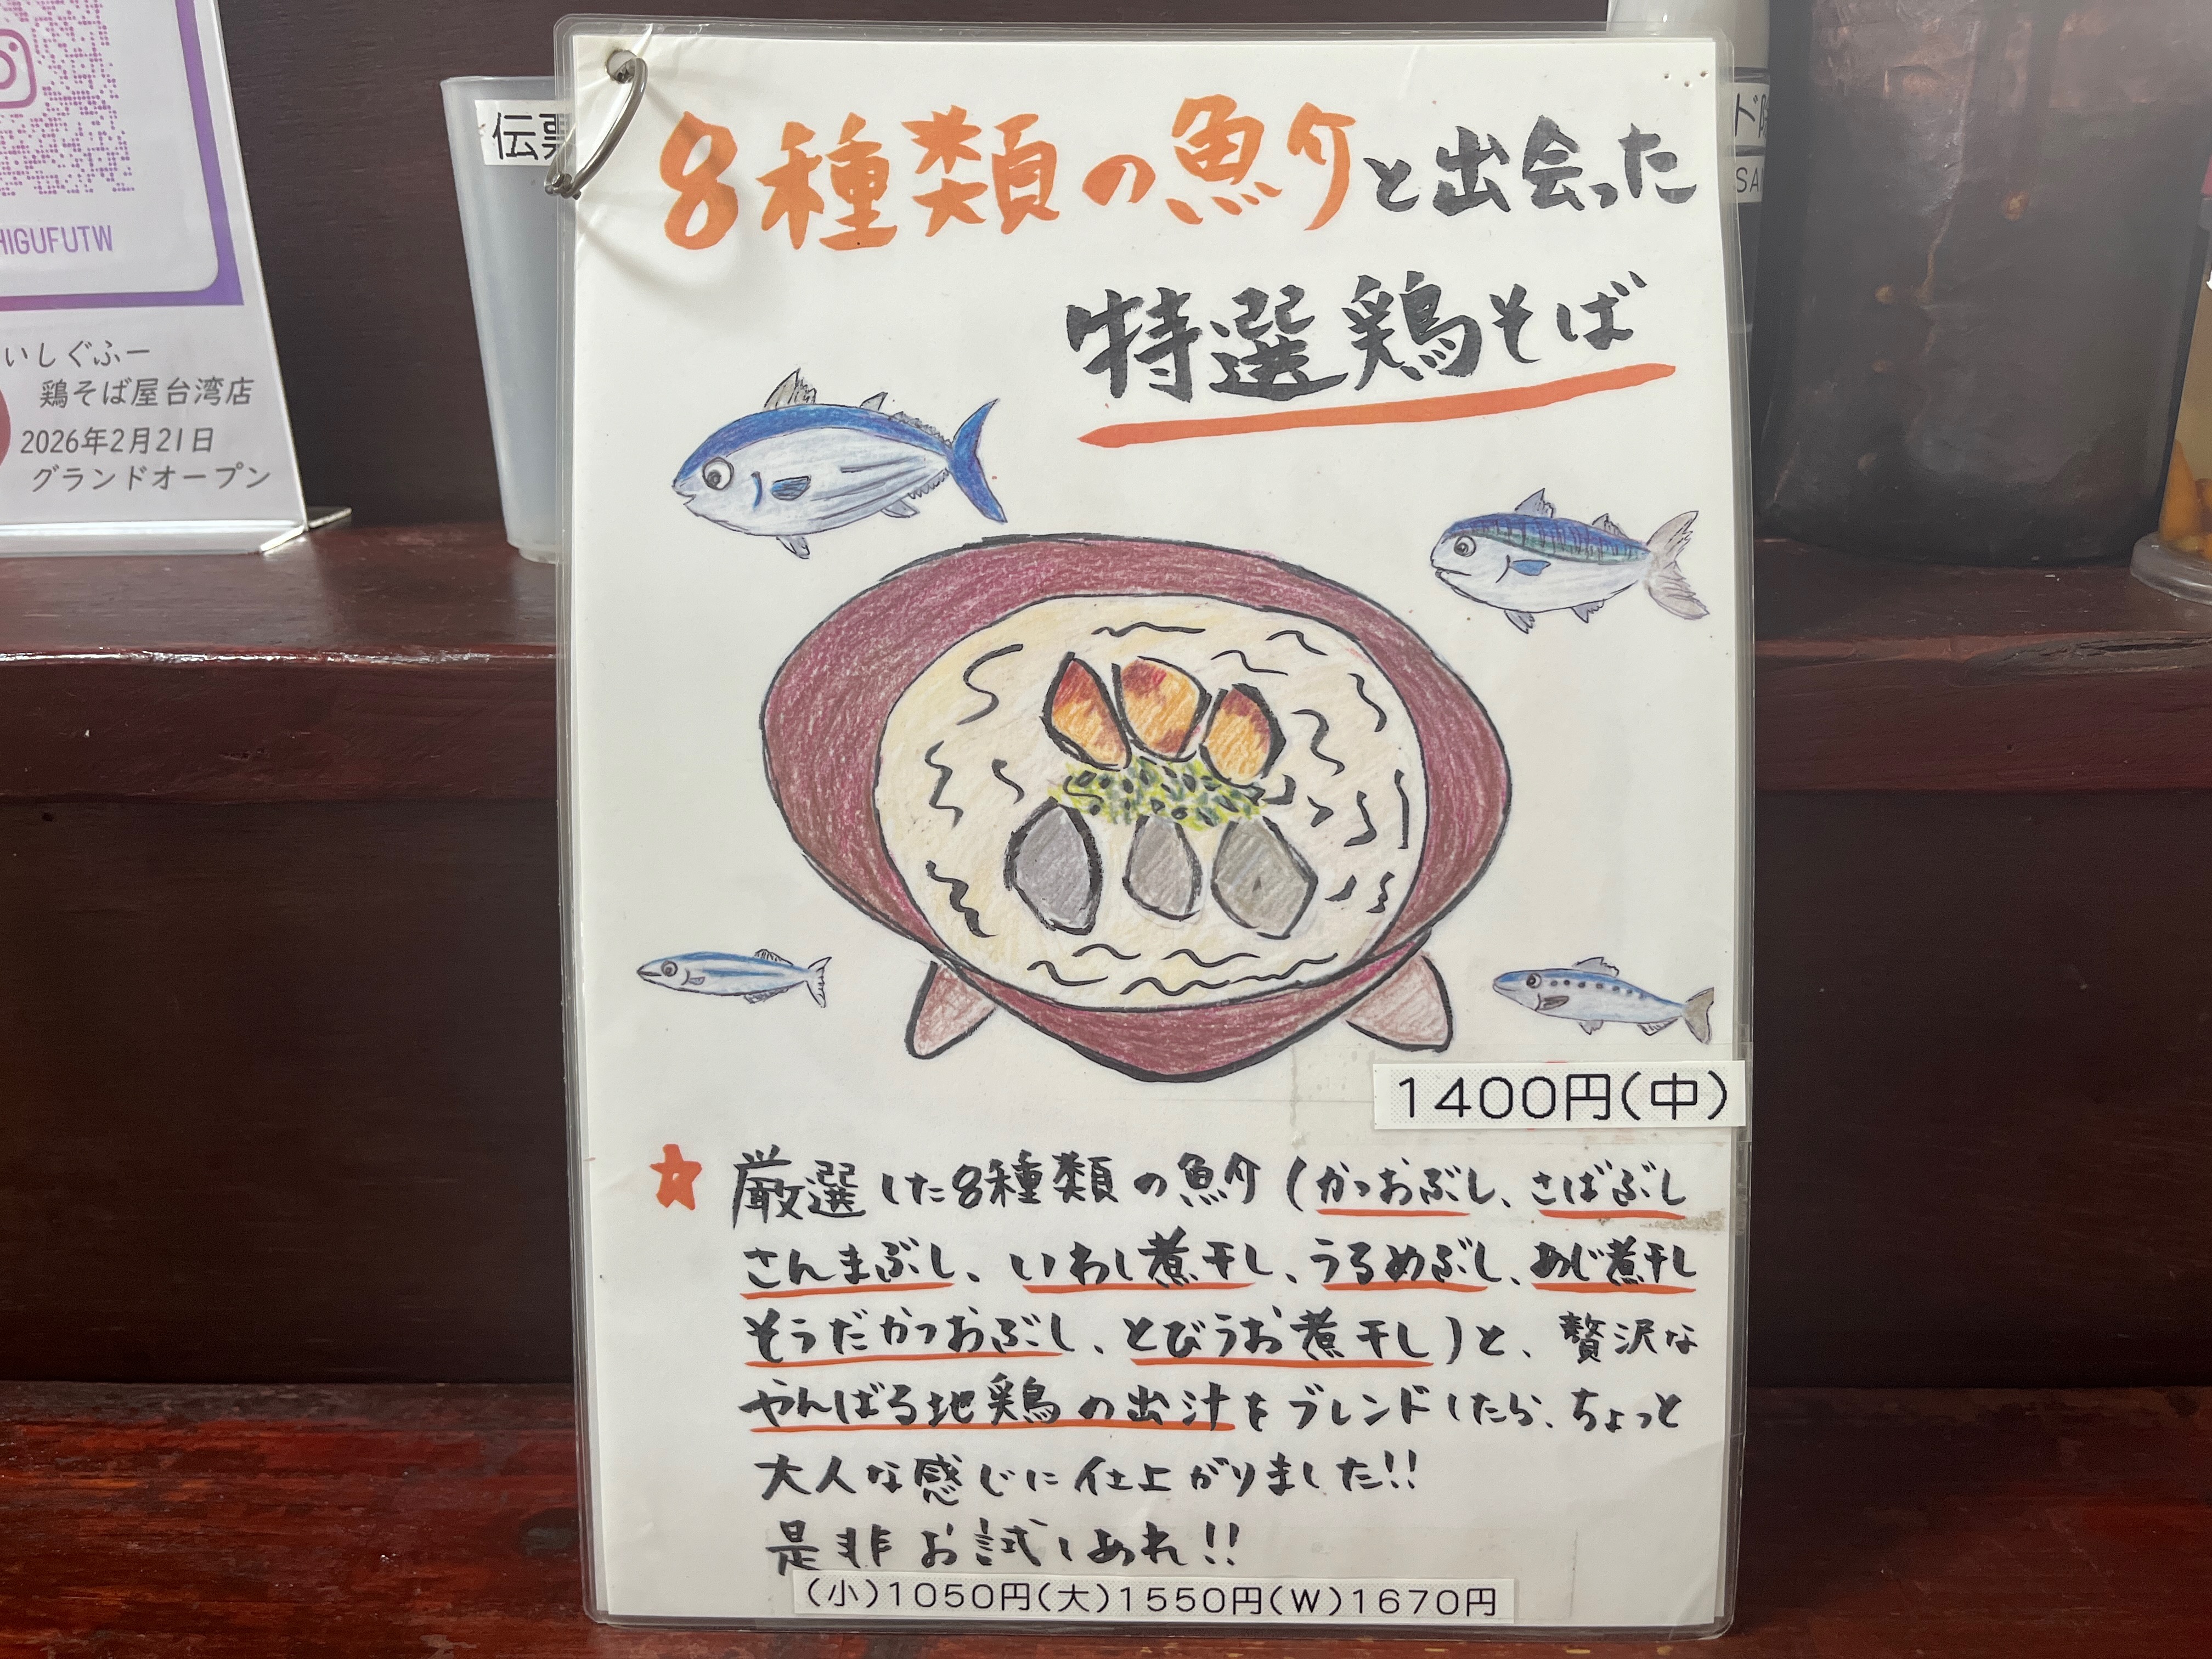 HIGUFUTW
いしぐふー
鶏そば屋台湾店
2026年2月21日
グランドオープン
伝票
8種類の魚介と出会った
特選鶏そば
1400円(中)
厳選した8種類の魚介(かつおぶし、さばぶし
さんまぶし、いわし煮干し、うるめぶし、あじ煮干し
そうだかつおぶし、とびうお煮干し)と、贅沢な
やんばる地鶏の出汁をブレンドしたら、ちょっと
大人な感じに仕上がりました!!
是非お試しあれ!!
(小)1050円(大)1550円(W)1670円